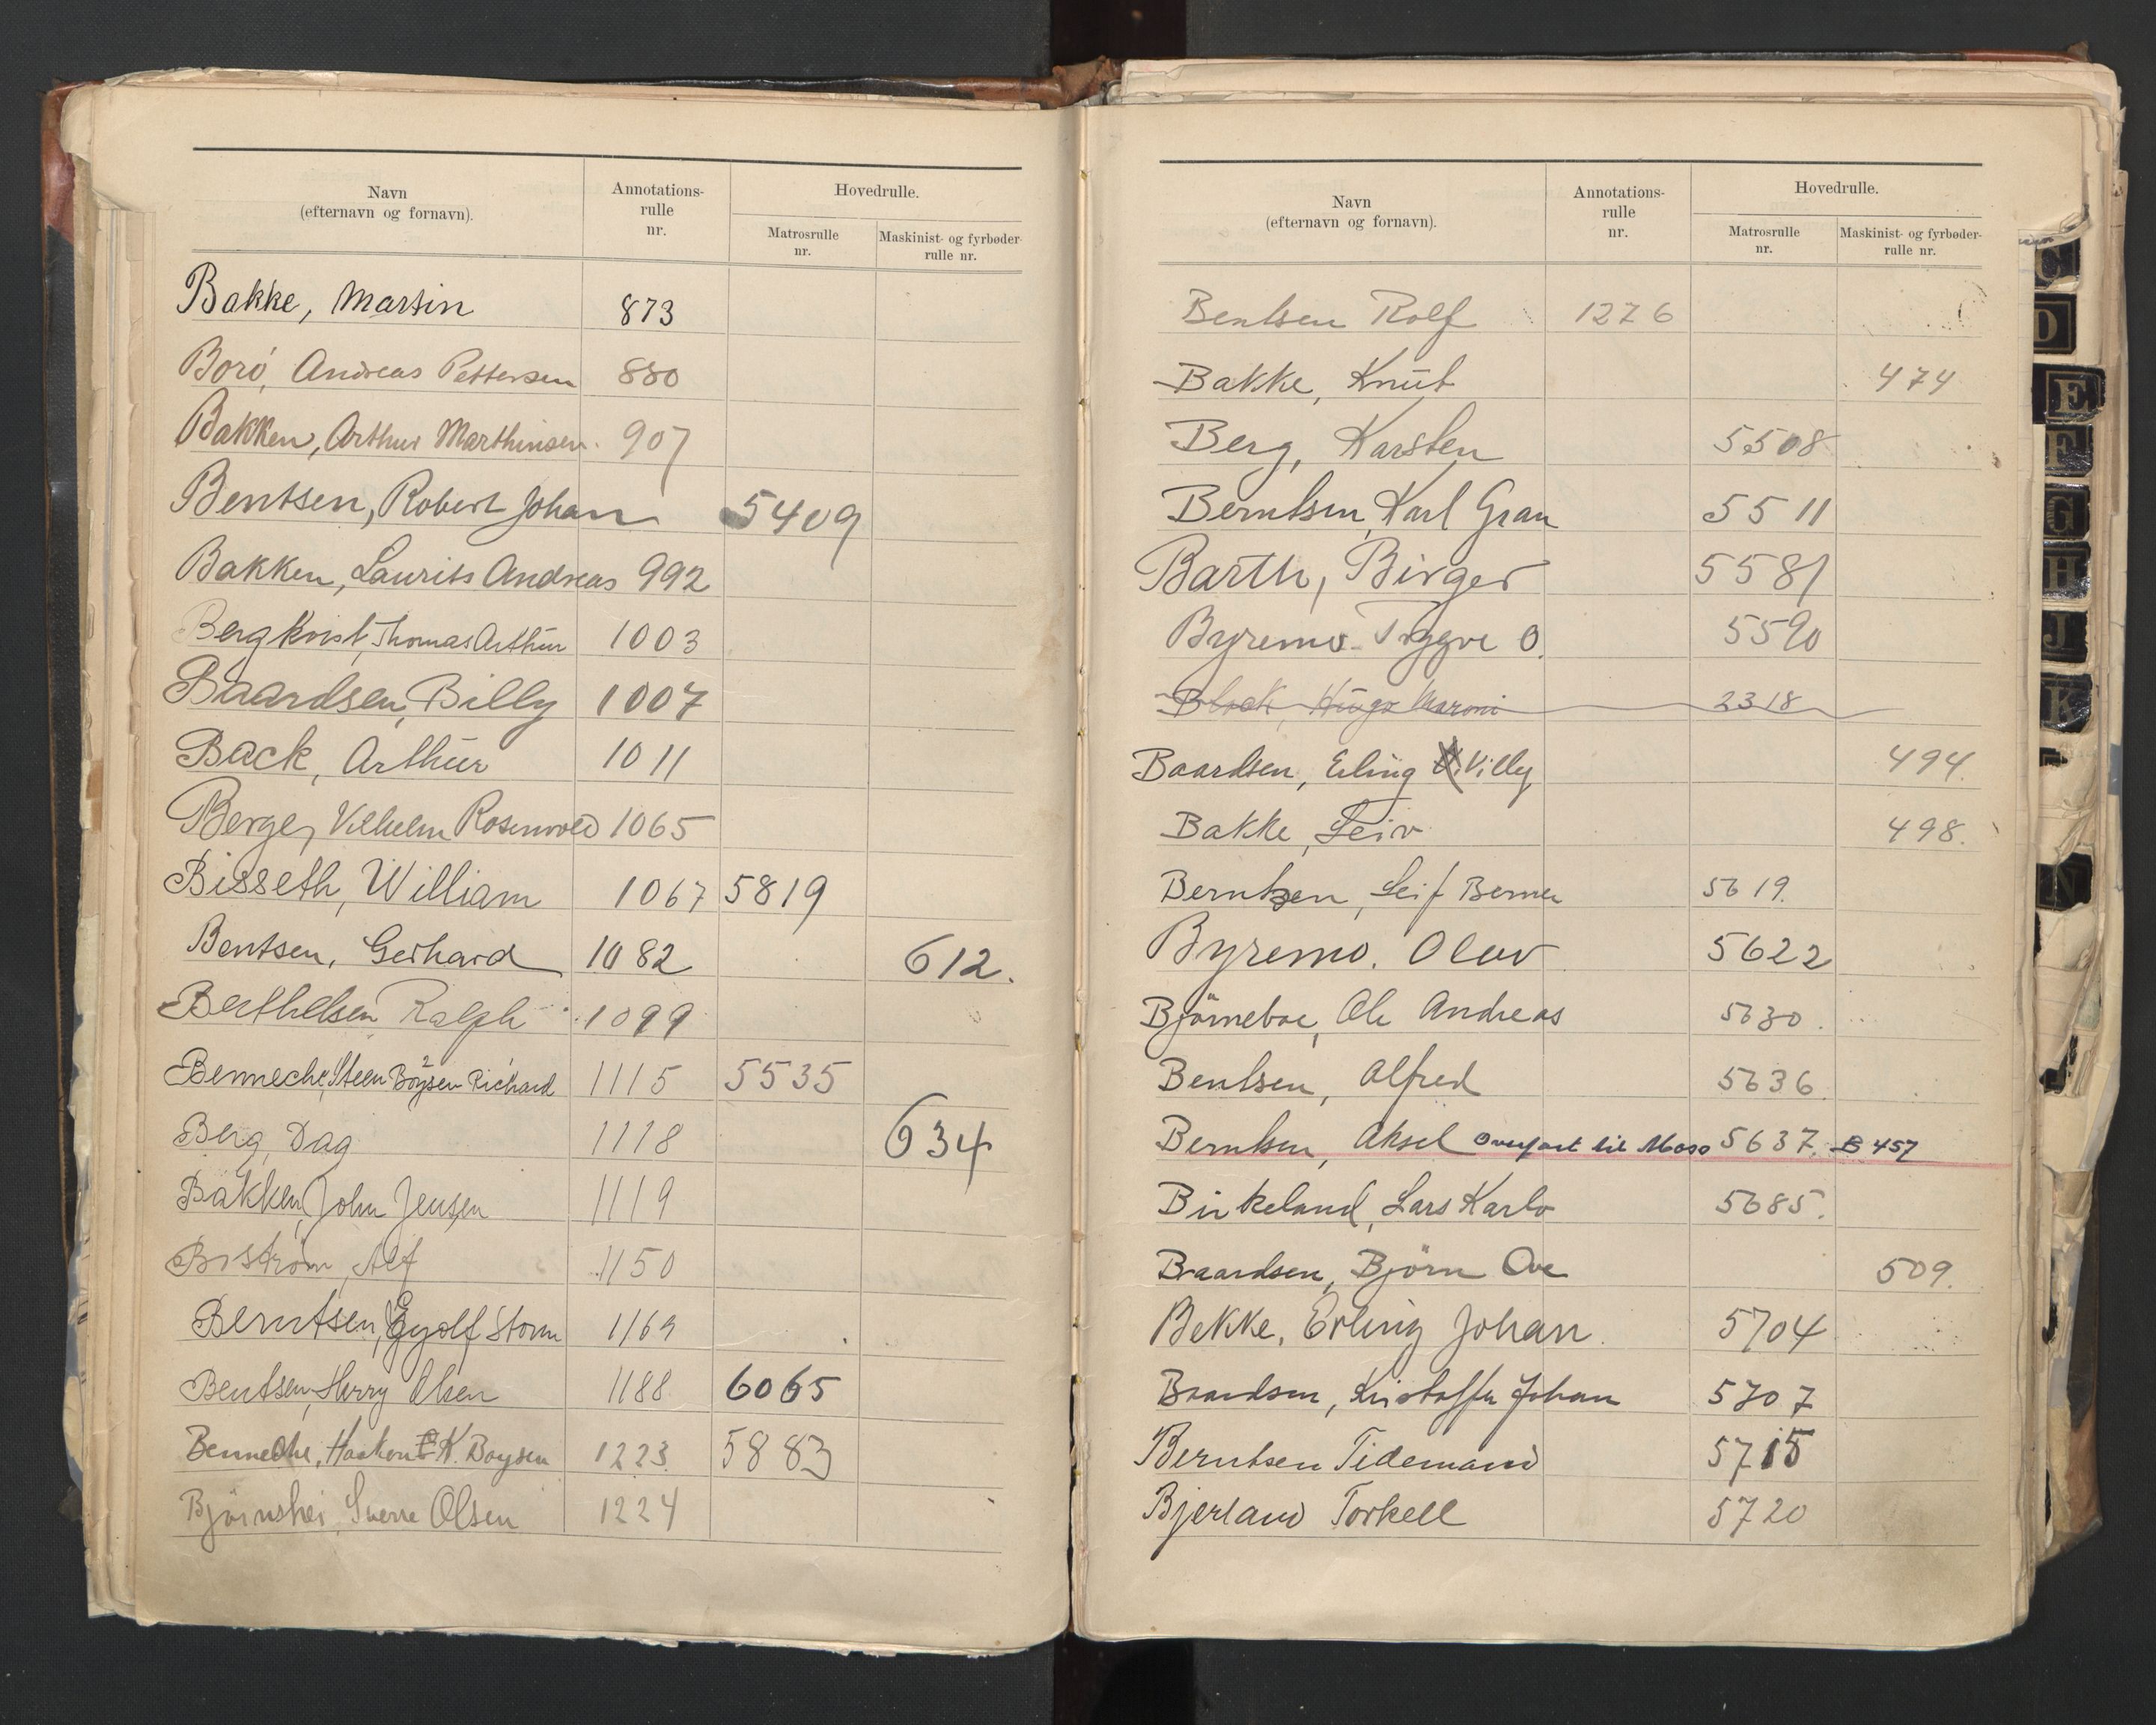 Navn
(efternavn og fornavn).
Annotations-
rulle
nr.
Hovedrulle.
Matrosrulle
nr.
Maskinist- og fyrbøder-
rulle nr.
Bakke, Martin 873
Borö, Andreas Pettersen 880
Bakken, Arthur Marthinsen. 907
Bentsen, Robert Johan 5409
Bakken, Laurits Andreas 992
Bergkvist, Thomas Arthur 1003
Baardsen, Billy 1007
Back, Arthur 1011
Berge, Vilhelm Rosenvold 1065
Bisseth, William 1067 5819
Bentsen, Gerhard 1082 612.
Berthelsen Ralph 1099
Benneche, Steen Boysen Richard 1115 5535
2
Berg, Dag 1118 634
Bakken, John Jensen 1119
Boström, Alf 1150
Berntsen, Eyolf Storm 1169
Bentsen, Harry Olsen 1188 6065
Benneche, Haakon K. Boysen 1223 5883
Björnshei, Sverre Olsen 1224
Navn
(efternavn og fornavn).
Annotations-
rulle
nr.
Hovedrulle.
Matrosrulle
nr.
Maskinist- og fyrbøder-
rulle nr.
Bentsen Rolf 1276
Bakke, Knut 474
Berg, Karsten 5508
Berntsen, Karl Gran 5511
Barth, Birger 5581
Byremo Tryggve O. 5590
Block, Hugo 2318
Baardsen, Erling Villy 494.
Bakke, Leiv 498.
Berntsen, Leif Berner 5619.
Byremo. Olav 5622
Björneboe, Ole Andreas 5630.
Bentsen, Alfred 5636.
Berntsen, Aksel Overført til Moss 5637. B 457
Birkeland, Lars Karlo 5685.
Baardsen, Björn Ove 509.
Bekke, Erling Johan. 5704
Baardsen, Kristoffer Johan 5707
Berntsen Tidemand 5715
Bjerland Torkell 5720
C
D
E
F
G
H
J
K
N